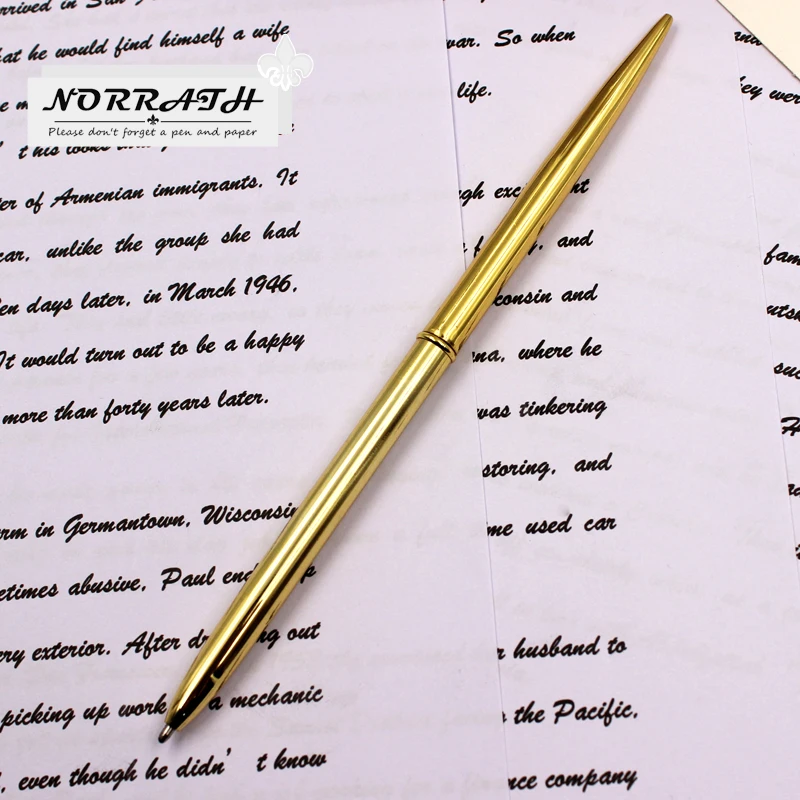 rrived in San
hat he would find himself a wife
NORRATH
Please don't forget a pen and paper
t his looks
er of Armenian immigrants. It
car, unlike the group she had
en days later, in March 1946,
It would turn out to be a happy
more than forty years later.
rm in Germantown, Wisconsin
etimes abusive, Paul end p
ery exterior. After dr ng out
picking up work a mechanic
, even though he didn' t know
war. So when
life.
gh exc nt
, and
consin and
na, where he
was tinkering
storing, and
me used car
r husband to
the Pacific,
nce company
and
hey wer
fam
utsk
suc
H
a